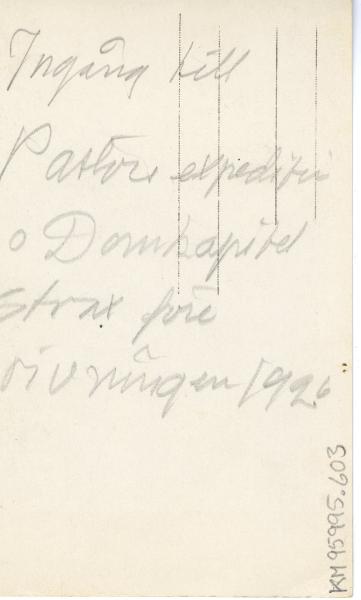 Ingång till
Pastors expeditn
o Domkapitel
strax före
rivningen 1926
KM 95995.603